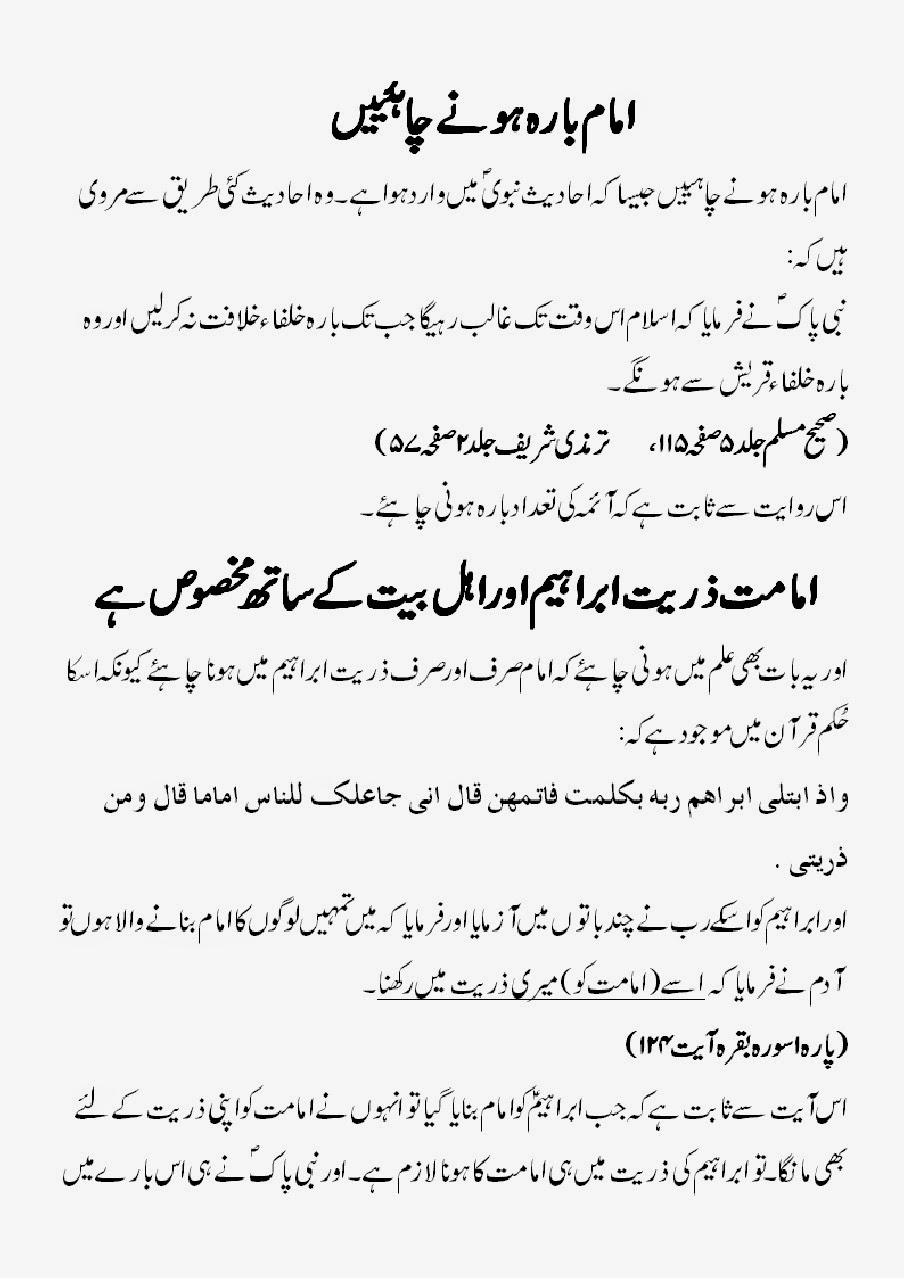 امام بارہ ہونے چاہئیں
امام بارہ ہونے چاہئیں جیسا کہ احادیث نبویؐ میں وارد ہوا ہے۔ وہ احادیث کئی طریق سے مروی
ہیں کہ:
نبی پاکؐ نے فرمایا کہ اسلام اس وقت تک غالب رہیگا جب تک بارہ خلفاء خلافت نہ کر لیں اور وہ
بارہ خلفاء قریش سے ہونگے۔
(صحیح مسلم جلد ۵ صفحہ ۱۱۵، ترمذی شریف جلد ۲ صفحہ ۵۷)
اس روایت سے ثابت ہے کہ آئمہ کی تعداد بارہ ہونی چاہئے۔
امامت ذریت ابراہیم اور اہل بیت کے ساتھ مخصوص ہے
اور یہ بات بھی علم میں ہونی چاہئے کہ امام صرف اور صرف ذریت ابراہیم میں ہونا چاہئے کیونکہ اسکا
حُکم قرآن میں موجود ہے کہ:
واذ ابتلی ابراھم ربہ بکلمت فاتمھن قال انی جاعلک للناس اماما قال ومن
ذریتی .
اور ابراہیم کو اسکے رب نے چند باتوں میں آزمایا اور فرمایا کہ میں تمہیں لوگوں کا امام بنانے والا ہوں تو
آدم نے فرمایا کہ اسے (امامت کو) میری ذریت میں رکھنا۔
(پارہ ا سورہ بقرہ آیت ۱۲۴)
اس آیت سے ثابت ہے کہ جب ابراہیمؑ کو امام بنایا گیا تو انہوں نے امامت کو اپنی ذریت کے لئے
بھی مانگا۔ تو ابراہیم کی ذریت میں ہی امامت کا ہونا لازم ہے۔ اور نبی پاکؐ نے ہی اس بارے میں